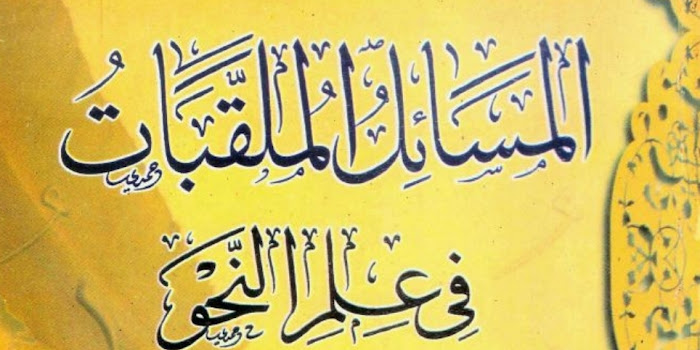 المسَائِلُ المُلَقَّبَاتُ
فِي عِلمِ النَّحْوِ